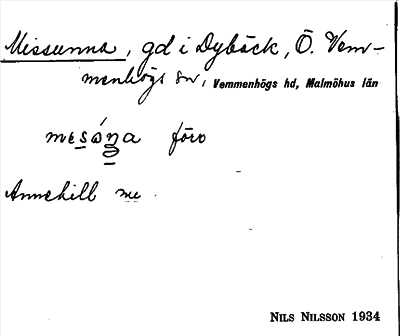 Missunna, gd i Dybäck, Ö. Vem-
menhögs sn, Vemmenhögs hd, Malmöhus län
Annehill
NILS NILSSON 1934